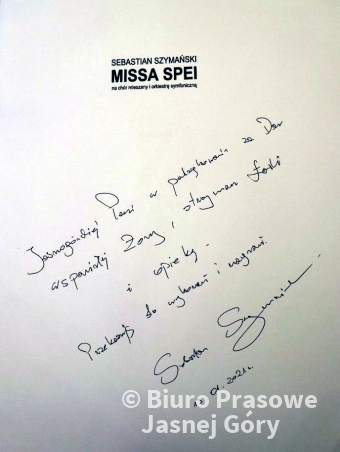 SEBASTIAN SZYMAŃSKI
MISSA SPEI
na chór mieszany i orkiestrę symfoniczną
Jasnogórskiej Pani w podziękowaniu za Dar
wspaniałej Żony, otrzymane Łaski
i opiekę.
Przekazuję do wykonań i nagrań.
Sebastian Szymański
01.2021r.
© Biuro Prasowe
Jasnej Góry